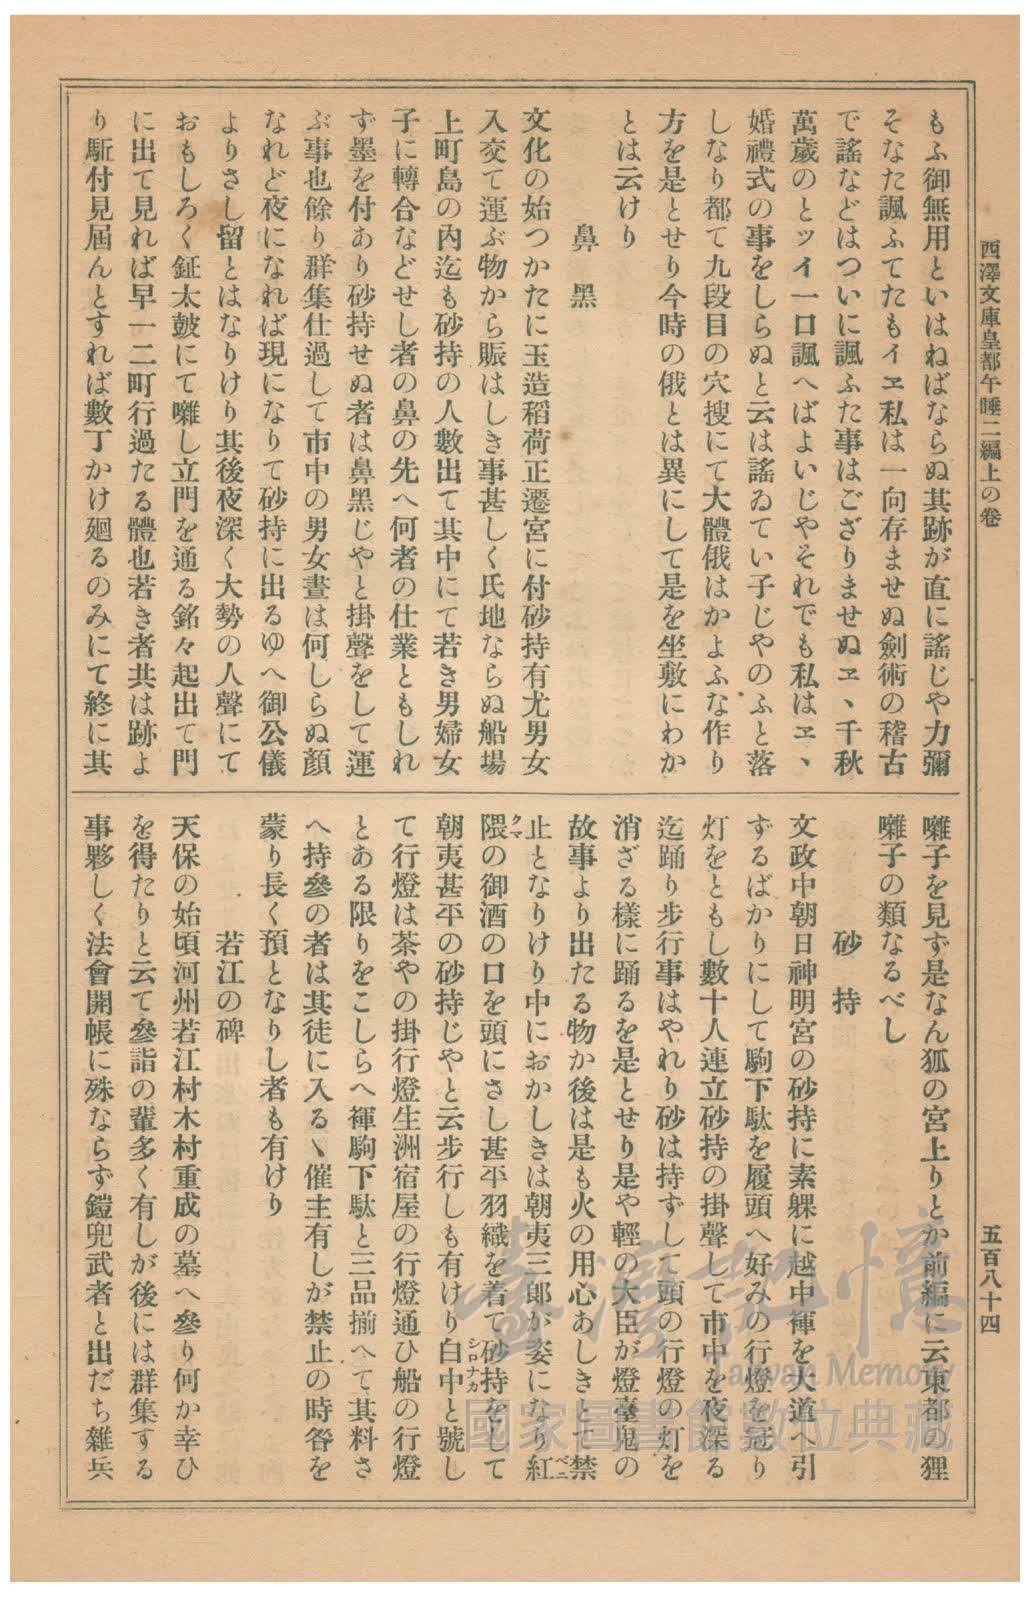 西澤文庫皇都午睡二編上の卷
五百八十四
もふ御無用といはねばならぬ其跡が直に謠じや力彌
そなた諷ふてたもイヱ私は一向存ませぬ劍術の稽古
で謠などはついに諷ふた事はござりませぬヱヽ千秋
萬歲のとツイ一口諷へばよいじやそれでも私はヱヽ
婚禮式の事をしらぬと云は謠ゐてい子じやのふと落
しなり都て九段目の穴搜にて大體俄はかよふな作り
方を是とせり今時の俄とは異にして是を坐敷にわか
とは云けり
鼻黑
文化の始つかたに玉造稻荷正遷宮に付砂持有尤男女
入交て運ぶ物から賑はしき事甚しく氏地ならぬ船場
上町島の內迄も砂持の人數出て其中にて若き男婦女
子に轉合などせし者の鼻の先へ何者の仕業ともしれ
ず墨を付あり砂持せぬ者は鼻黑じやと掛聲をして運
ぶ事也餘り群集仕過して市中の男女晝は何しらぬ顏
なれど夜になれば現になりて砂持に出るゆへ御公儀
よりさし留とはなりけり其後夜深く大勢の人聲にて
おもしろく鉦太皷にて囃し立門を通る銘々起出て門
に出て見れば早一二町行過たる體也若き者共は跡よ
り駈付見屆んとすれば數丁かけ廻るのみにて終に其
囃子を見ず是なん狐の宮上りとか前編に云東都の狸
囃子の類なるべし
砂持
文政中朝日神明宮の砂持に素躶に越中褌を大道へ引
ずるばかりにして駒下駄を履頭へ好みの行燈を冠り
灯をともし數十人連立砂持の掛聲して市中を夜深る
迄踊り步行事はやれり砂は持ずして頭の行燈の灯を
消ざる樣に踊るを是とせり是や輕の大臣が燈臺鬼の
故事より出たる物か後は是も火の用心あしきとて禁
止となりけり中におかしきは朝夷三郞が姿になり紅ベニ
隈クマの御酒の口を頭にさし甚平羽織を着て砂持をして
朝夷甚平の砂持じやと云步行しも有けり白中シロナカと號し
て行燈は茶やの掛行燈生洲宿屋の行燈通ひ船の行燈
とある限りをこしらへ褌駒下駄と三品揃へて其料さ
へ持參の者は其徒に入るヽ催主有しが禁止の時咎を
蒙り長く預となりし者も有けり
若江の碑
天保の始頃河州若江村木村重成の墓へ參り何か幸ひ
を得たりと云て參詣の輩多く有しが後には群集する
事夥しく法會開帳に殊ならず鎧兜武者と出だち雜兵
臺灣記憶
Taiwan Memory
國家圖書館數位典藏